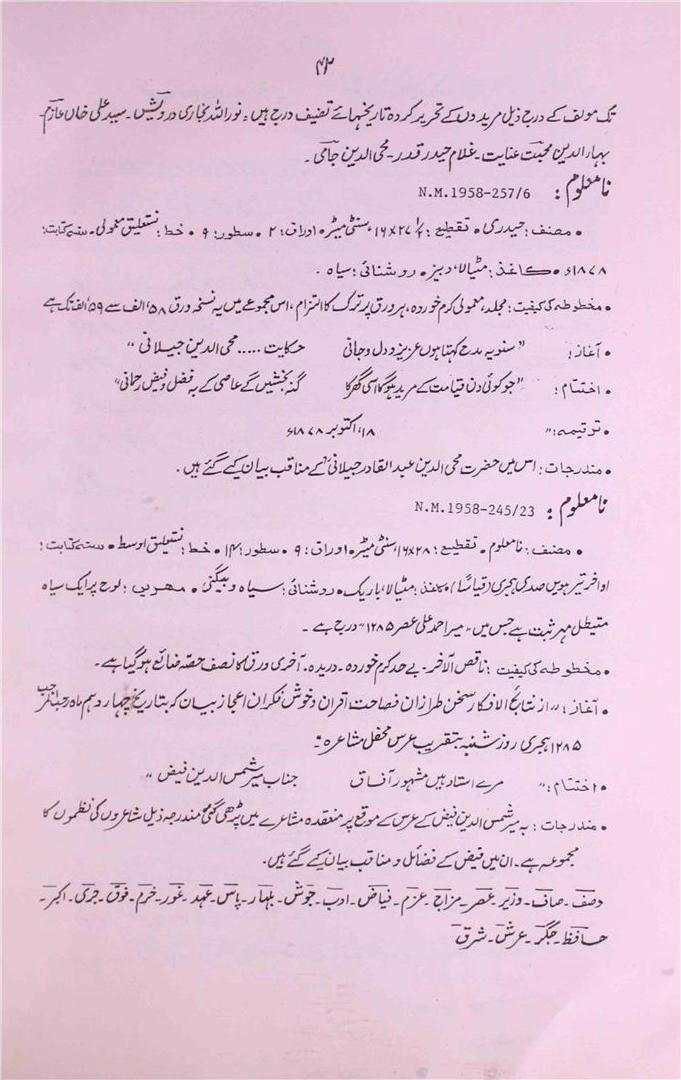 ۴۲
تک مولف کے درج ذیل مریدوں کے تحریر کردہ تاریخہائے تصنیف درج ہیں: نور اللہ بخاری درویش۔ سید علی خاں عازم۔
بہار الدین محبت عنایت۔ غلام حیدر قدر۔ محی الدین جامی۔
نامعلوم: N.M.1958-257/6
• مصنف: حیدری • تقطیع: ۱۶x۲۷ ۱/۲ سنٹی میٹر • اوراق: ۲ • سطور: ۹ • خط: نستعلیق معمولی • سنہ کتابت:
۱۸۷۸ء • کاغذ: مٹیالا، دبیز • روشنائی: سیاہ۔
• مخطوطہ کی کیفیت: مجلد، معمولی کرم خوردہ، ہر ورق پر ترک کا التزام، اس مجموعے میں یہ نسخہ ورق ۵۸، الف سے ۵۹، الف تک ہے
• آغاز: "سنو یہ مدح کہتا ہوں عزیزو دل و جانی حکایت ..... محی الدین جیلانی"
• اختتام: "جو کوئی دن قیامت کے مرید ہوگا اسی گھر کا گنہ بخشیں گے عاصی کے بہ فضل و فیض رحمانی"
• ترقیمہ: " ۱۸، اکتوبر ۱۸۷۸ء
• مندرجات: اس میں حضرت محی الدین عبدالقادر جیلانی کے مناقب بیان کیے گئے ہیں۔
نامعلوم: N.M.1958-245/23
• مصنف: نامعلوم • تقطیع: ۱۶x۲۸، سنٹی میٹر • اوراق: ۹ • سطور: ۱۴ • خط: نستعلیق اوسط • سنہ کتابت:
اواخر تیرہویں صدی ہجری (قیاسًا) • کاغذ: مٹیالا، باریک • روشنائی: سیاہ و بیگنی • مہریں: لوح پر ایک سیاہ
مستطیل مہر ثبت ہے جس میں "میر احمد علی عصر ۱۲۸۵" درج ہے۔
• مخطوطہ کی کیفیت: ناقص الآخر۔ بے حد کرم خوردہ۔ دریدہ۔ آخری ورق کا نصف حصہ ضائع ہو گیا ہے۔
• آغاز: "از نتائج الافکار سخن طرازان فصاحت اقران و خوش فکران اعجاز بیان کہ بتاریخ چہار دہم ماہ رجب المرجب
۱۲۸۵ ہجری روز شنبہ بتقریب عرس محفل مشاعرہ"
• اختتام: " مرے استاد ہیں مشہور آفاق جناب میر شمس الدین فیض"
• مندرجات: یہ میر شمس الدین فیض کے عرس کے موقع پر منعقدہ مشاعرے میں پڑھی گئی مندرجہ ذیل شاعروں کی نظموں کا
مجموعہ ہے۔ ان میں فیض کے فضائل و مناقب بیان کیے گئے ہیں۔
وصف۔ صاف۔ وزیر۔ عصر۔ مزاج۔ عزم۔ فیاض۔ ادب۔ جوش۔ بہار۔ پاس۔ عہد۔ غور۔ خرم۔ فوق۔ جری۔ اکبر۔
حافظ۔ جگر۔ عرش۔ شرق